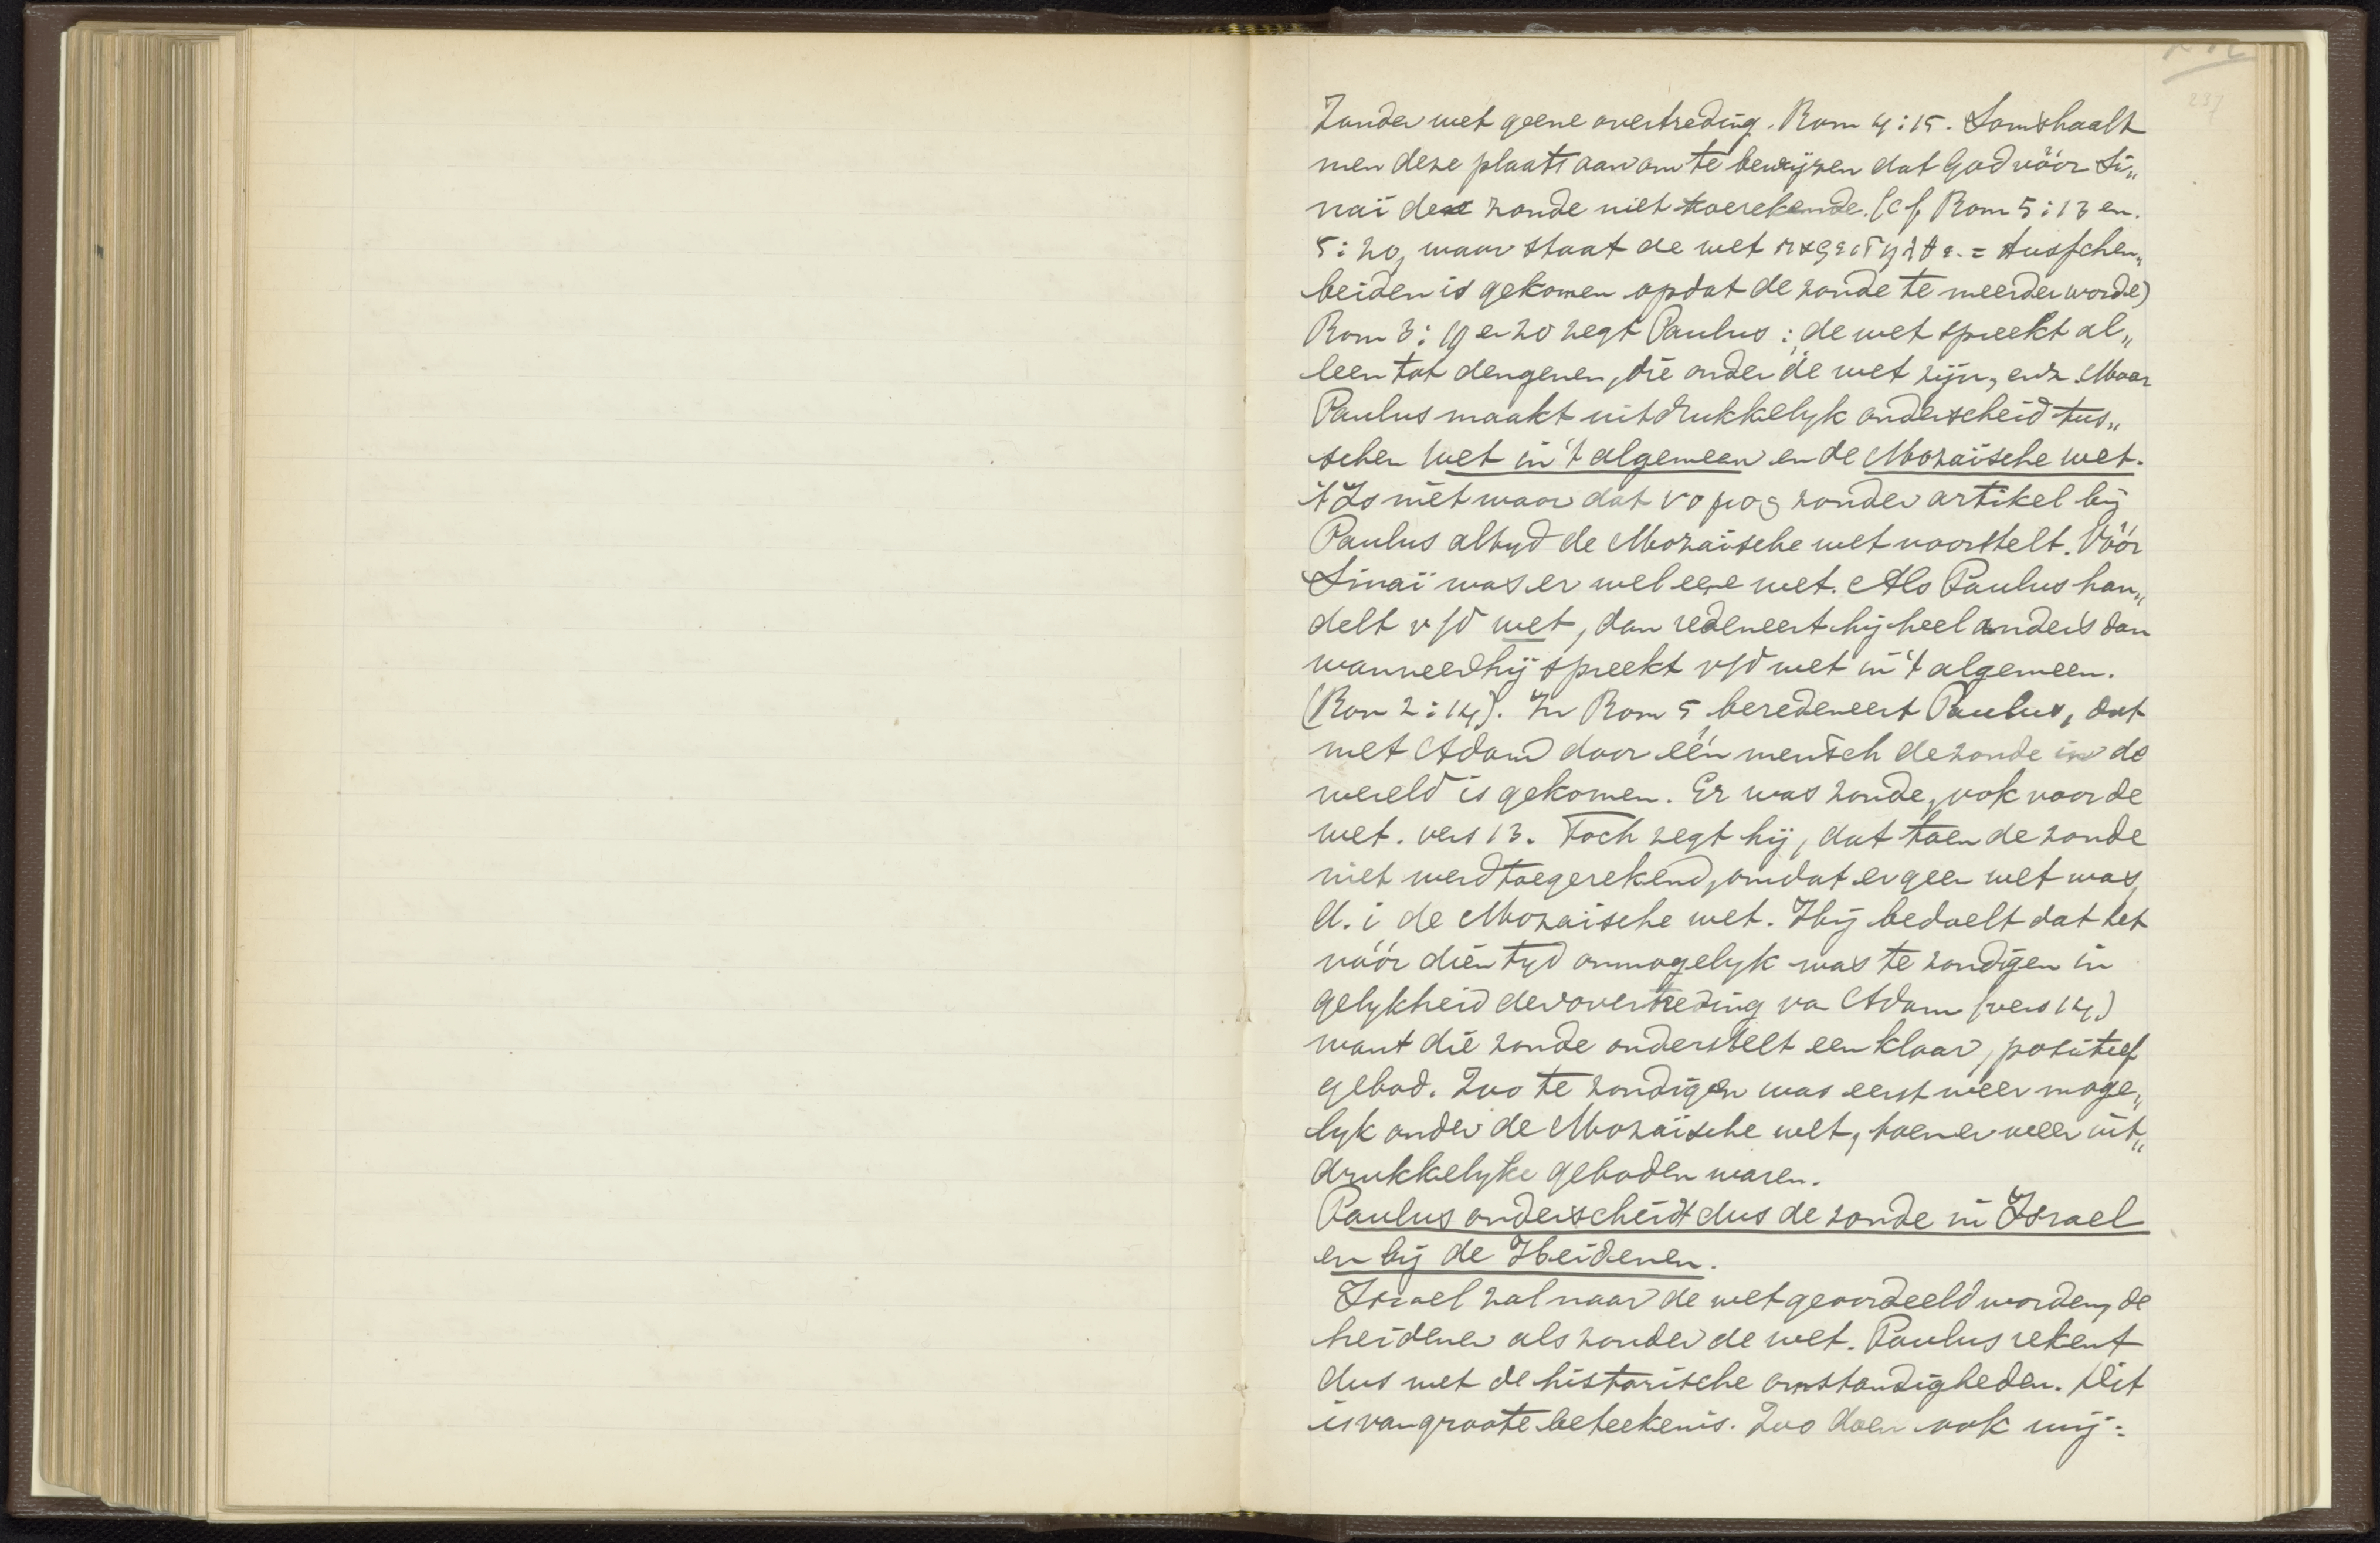 237
Zonder wet geene overtreding. Rom 4:15. Soms haalt
men deze plaats aan om te bewijzen dat God vóór Si„
naï de zonde niet toerekende. (cf Rom 5:13 en.
5:20, waar staat de wet παρεισηλθε. = tusschen„
beiden is gekomen opdat de zonde te meerder worde)
Rom 3:19 en 20 zegt Paulus: de wet spreekt al„
leen tot dengenen, die onder de wet zijn, enz. Maar
Paulus maakt uitdrukkelyk onderscheid tus„
schen wet in 't algemeen en de Mozaïsche wet.
't Is niet waar dat νομος zonder artikel bij
Paulus altyd de Mozaïsche wet voorstelt. Vóór
Sinaï was er wel eene wet. Als Paulus han„
delt v/d wet, dan redeneert hij heel anders dan
wanneer hij spreekt v/d wet in 't algemeen.
(Rom 2:14). In Rom 5 beredeneert Paulus, dat
met Adam door één mensch de zonde in de
wereld is gekomen. Er was zonde, ook voor de
wet. vers 13. Toch zegt hij, dat toen de zonde
niet werd toegerekend, omdat er geen wet was,
d.i de Mozaïsche wet. Hij bedoelt dat het
vóór dien tyd onmogelyk was te zondigen in
gelykheid der overtreding van Adam (vers 14)
want die zonde onderstelt een klaar, positief
gebod. Zoo te zondigen was eerst weer moge„
lyk onder de Mozaïsche wet, toen er weer uit„
drukkelyke geboden waren.
Paulus onderscheidt dus de zonde in Israel
en bij de Heidenen.
Israel zal naar de wet geoordeeld worden, de
heidenen als zonder de wet. Paulus rekent
dus met de historische omstandigheden. Dit
is van groote beteekenis. Zoo doen ook wij: